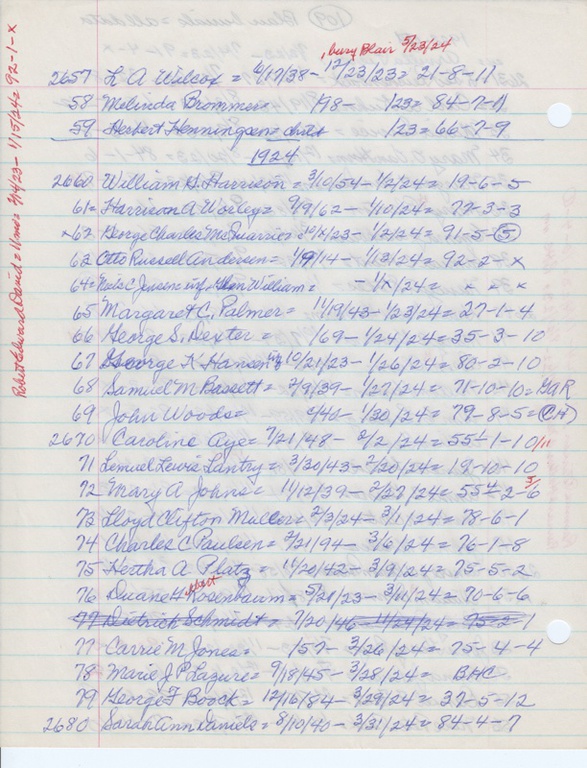 , bury Blair 5/23/24
2657 L A Wilcox = 6/17/38 - 12/23/23 = 21-8-11
58 Melinda Brommer = /78 - /23 = 84-7-11
59 Herbert Henningsen = /23 = 66-7-9
1924
2660 William H. Harrison = 3/10/54 - 1/2/24 = 19-6-5
61 = Harrison A Worley = 9/9/62 - 1/10/24 = 77-3-3
x 62 George Charles McQuarrie = 10/x/23 - 1/2/24 = 91-5-5
63 Otto Russell Andersen = 1/9/14 - 1/13/24 = 92-2-x
64 = Neils C Jensen inf. William = - 1/x/24 = x x x
65 Margaret C. Palmer = 11/19/43 - 1/23/24 = 27-1-4
66 George S. Dexter = /69 - 1/24/24 = 35-3-10
67 George K Hansen 10/21/23 - 1/26/24 = 80-2-10
68 Samuel M Bassett = 2/9/39 - 1/27/24 = 71-10-10 = GAR
69 John Woods = /40 - 1/30/24 = 79-8-5 = (CH)
2670 Caroline Aye = 7/21/48 - 2/2/24 = 55-1-10/11
71 Lemuel Lewis Lantry = 3/20/43 - 2/20/24 = 19-10-10
72 Mary A Johns = 11/12/39 - 2/27/24 = 554-2-6 5/
73 Lloyd Clifton Muller = 2/3/24 - 3/1/24 = 78-6-1
74 Charles C Paulsen = 2/21/94 - 3/6/24 = 76-1-8
75 Hertha A Platz = 11/20/42 - 3/9/24 = 75-5-2
76 Duane H Rosenbaum = 5/21/23 - 3/11/24 = 70-6-6
77 Dietrich Schmidt = 7/20/46 - 11/24/24 = 75-2-1
77 Carrie M Jones = /57 - 3/26/24 = 75-4-4
78 Marie J P Lazure = 9/18/45 - 3/28/24 = BHC
79 George F Boock = 12/16/84 - 3/29/24 = 37-5-12
2680 Sarah Ann Daniels = 8/10/40 - 3/31/24 = 84-4-7
Robert Edward David = 3/14/23 - 1/15/24 = 92-1-x